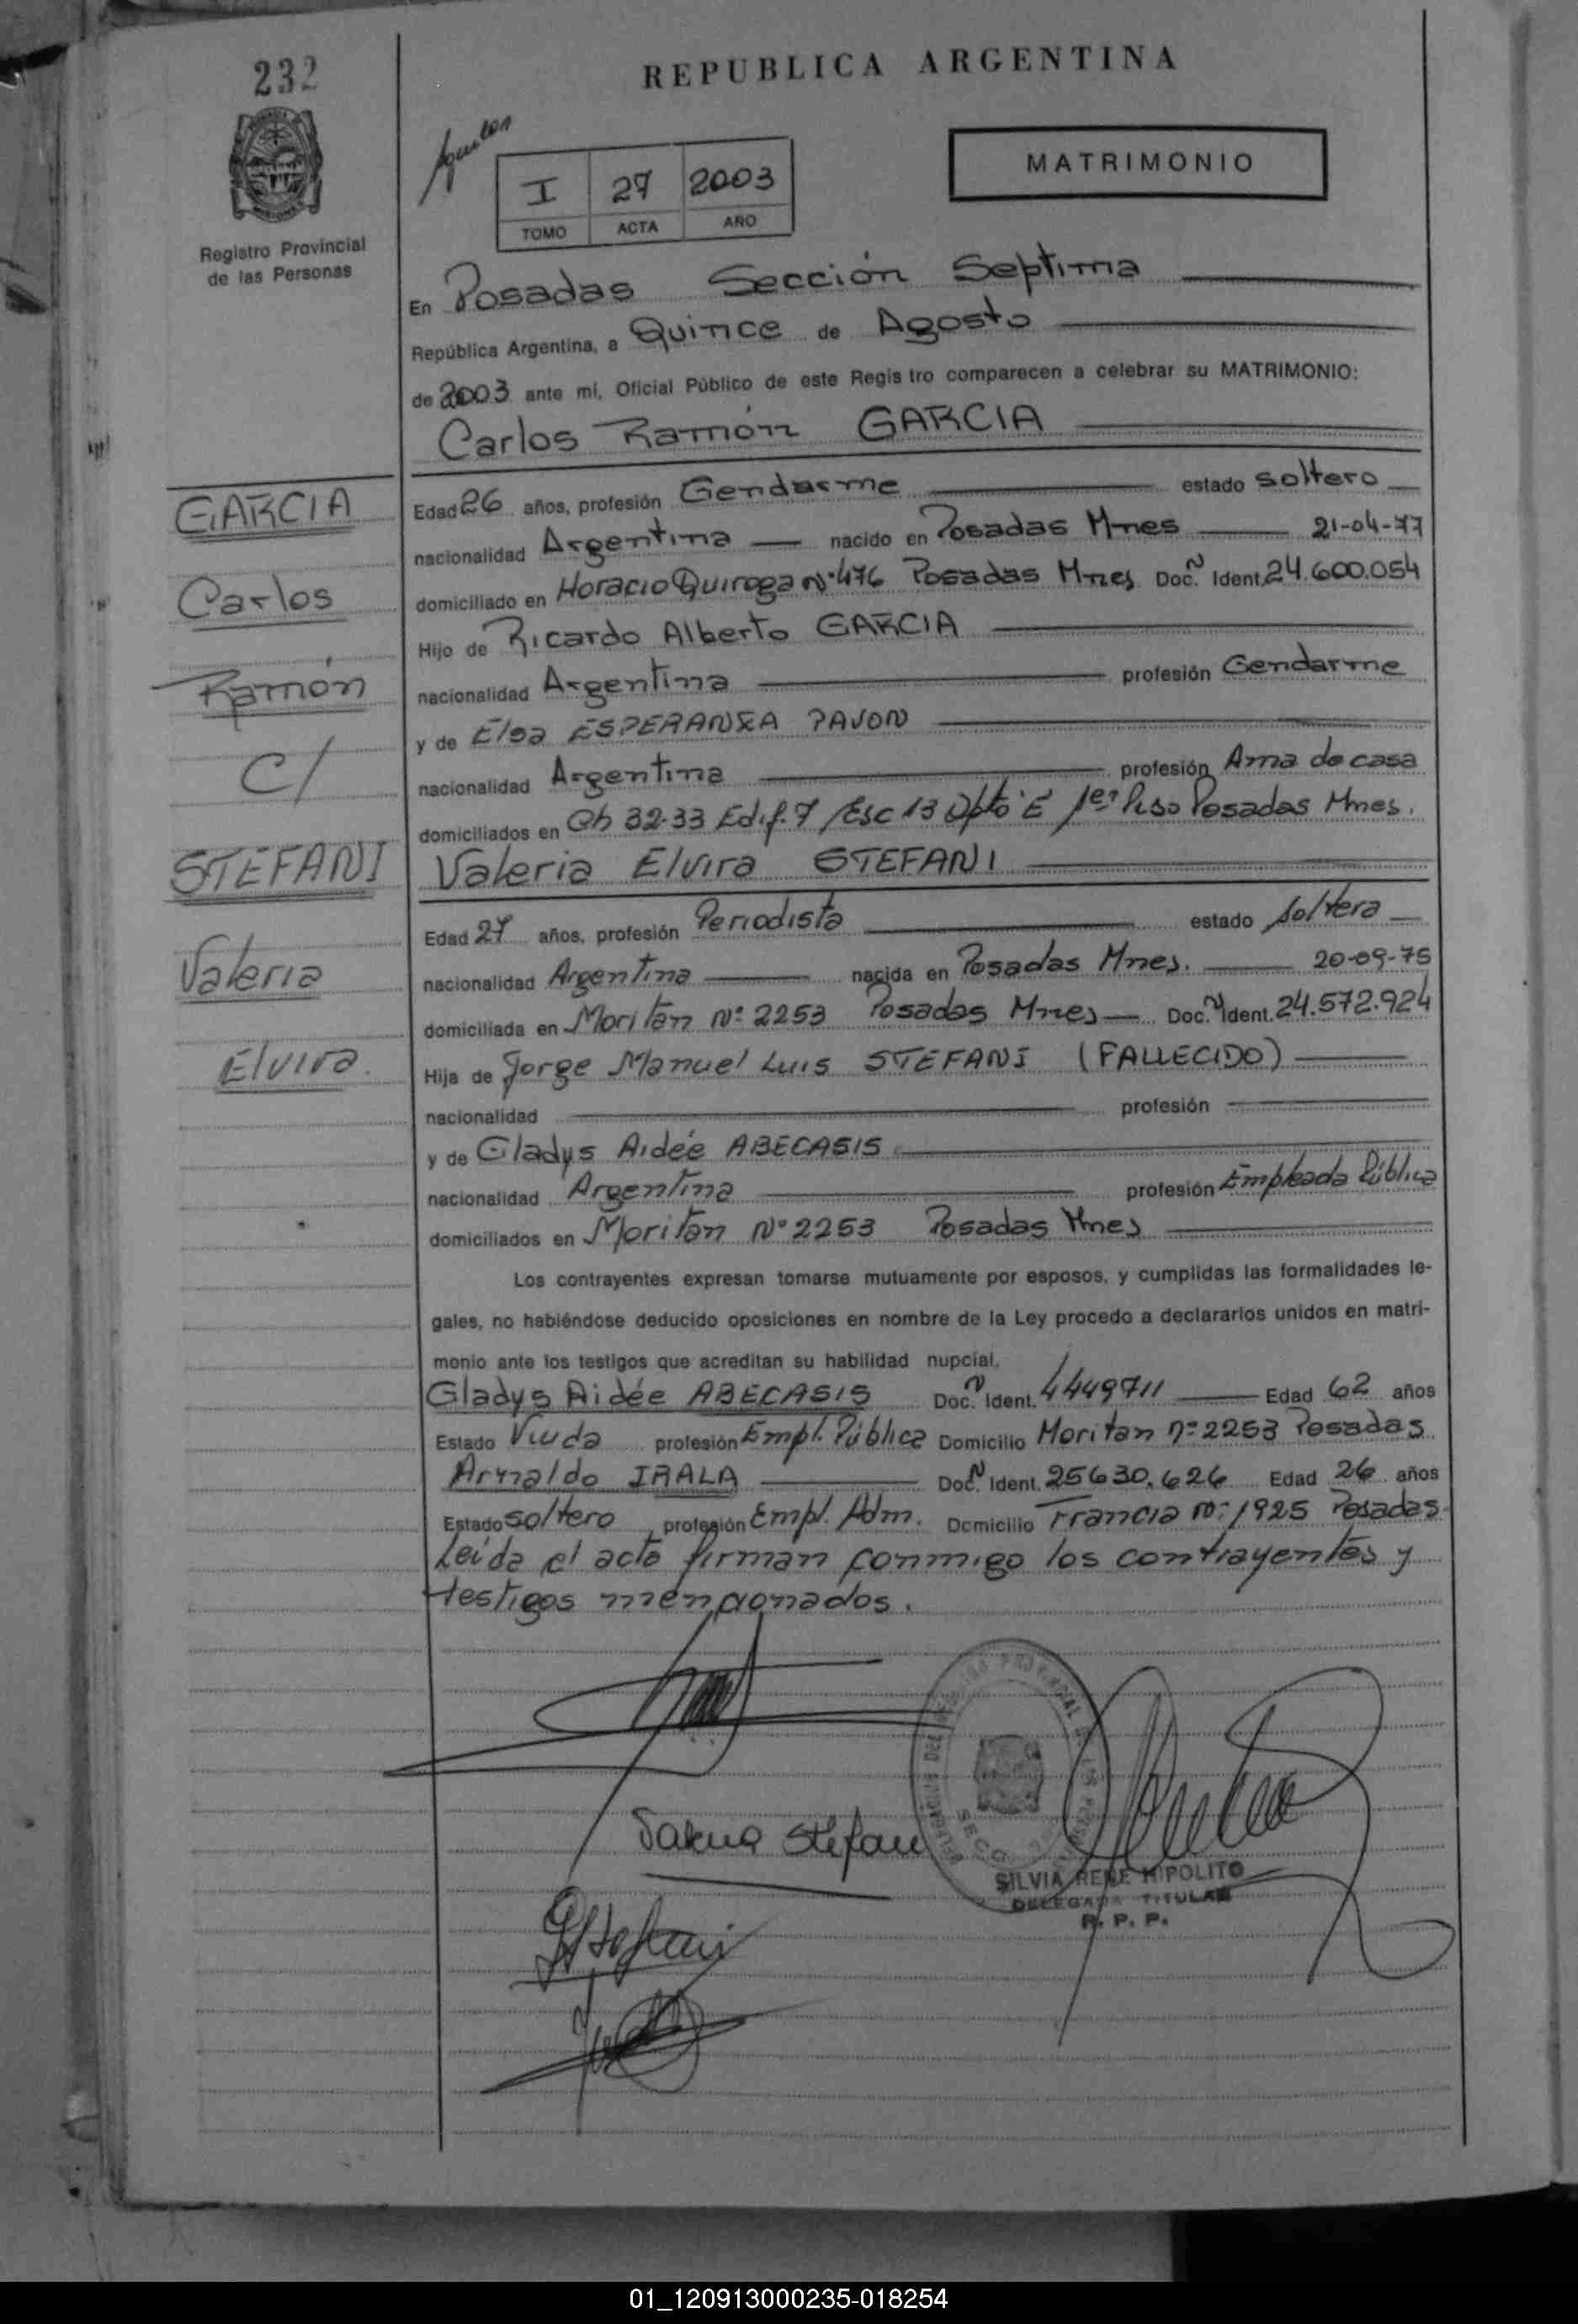 232
REPUBLICA ARGENTINA
MATRIMONIO
I 27 2003
TOMO ACTA AÑO
Registro Provincial
de las Personas
En Posadas Sección Septima
República Argentina, a Quince de Agosto
de 2003 ante mi, Oficial Público de este Regis tro comparecen a celebrar su MATRIMONIO:
Carlos Ramón GARCIA
GARCIA
Carlos
Ramón
C/
STEFANI
Valeria
Elvira.
Edad 26 años, profesión Gendarme estado soltero
nacionalidad Argentina nacido en Posadas Mnes 21-04-77
domiciliado en Horacio Quiroga Nº 476 Posadas Mnes Doc. N Ident. 24.600.054
Hijo de Ricardo Alberto GARCIA
nacionalidad Argentina profesión Gendarme
y de Elsa ESPERANZA PAVON
nacionalidad Argentina profesión Ama de casa
domiciliados en Ch 32-33 Edif. 7 Esc 13 Dpto E 1er Piso Posadas Mnes.
Valeria Elvira STEFANI
Edad 27 años, profesión Periodista estado soltera
nacionalidad Argentina nacida en Posadas Mnes. 20-09-75
domiciliada en Moritan Nº 2253 Posadas Mnes Doc. N Ident. 24.572.924
Hija de Jorge Manuel Luis STEFANI (FALLECIDO)
nacionalidad profesión
y de Gladys Aidée ABECASIS
nacionalidad Argentina profesión Empleada Pública
domiciliados en Moritan Nº 2253 Posadas Mnes
Los contrayentes expresan tomarse mutuamente por esposos, y cumplidas las formalidades le-
gales, no habiéndose deducido oposiciones en nombre de la Ley procedo a declararlos unidos en matri-
monio ante los testigos que acreditan su habilidad nupcial.
Gladys Aidée ABECASIS Doc. N Ident. 4449711 Edad 62 años
Estado Viuda profesión Empl. Pública Domicilio Moritan nº 2253 Posadas
Arnaldo IRALA Doc. N Ident. 25630.626 Edad 26 años
Estado soltero profesión Empl. Adm. Domicilio Francia Nº 1925 Posadas
Leída el acta firman conmigo los contrayentes y
testigos mencionados.
Valeria Stefani
SILVIA RENE HIPOLITO
DELEGADA TITULAR
R. P. P.
GStefani
01_120913000235-018254